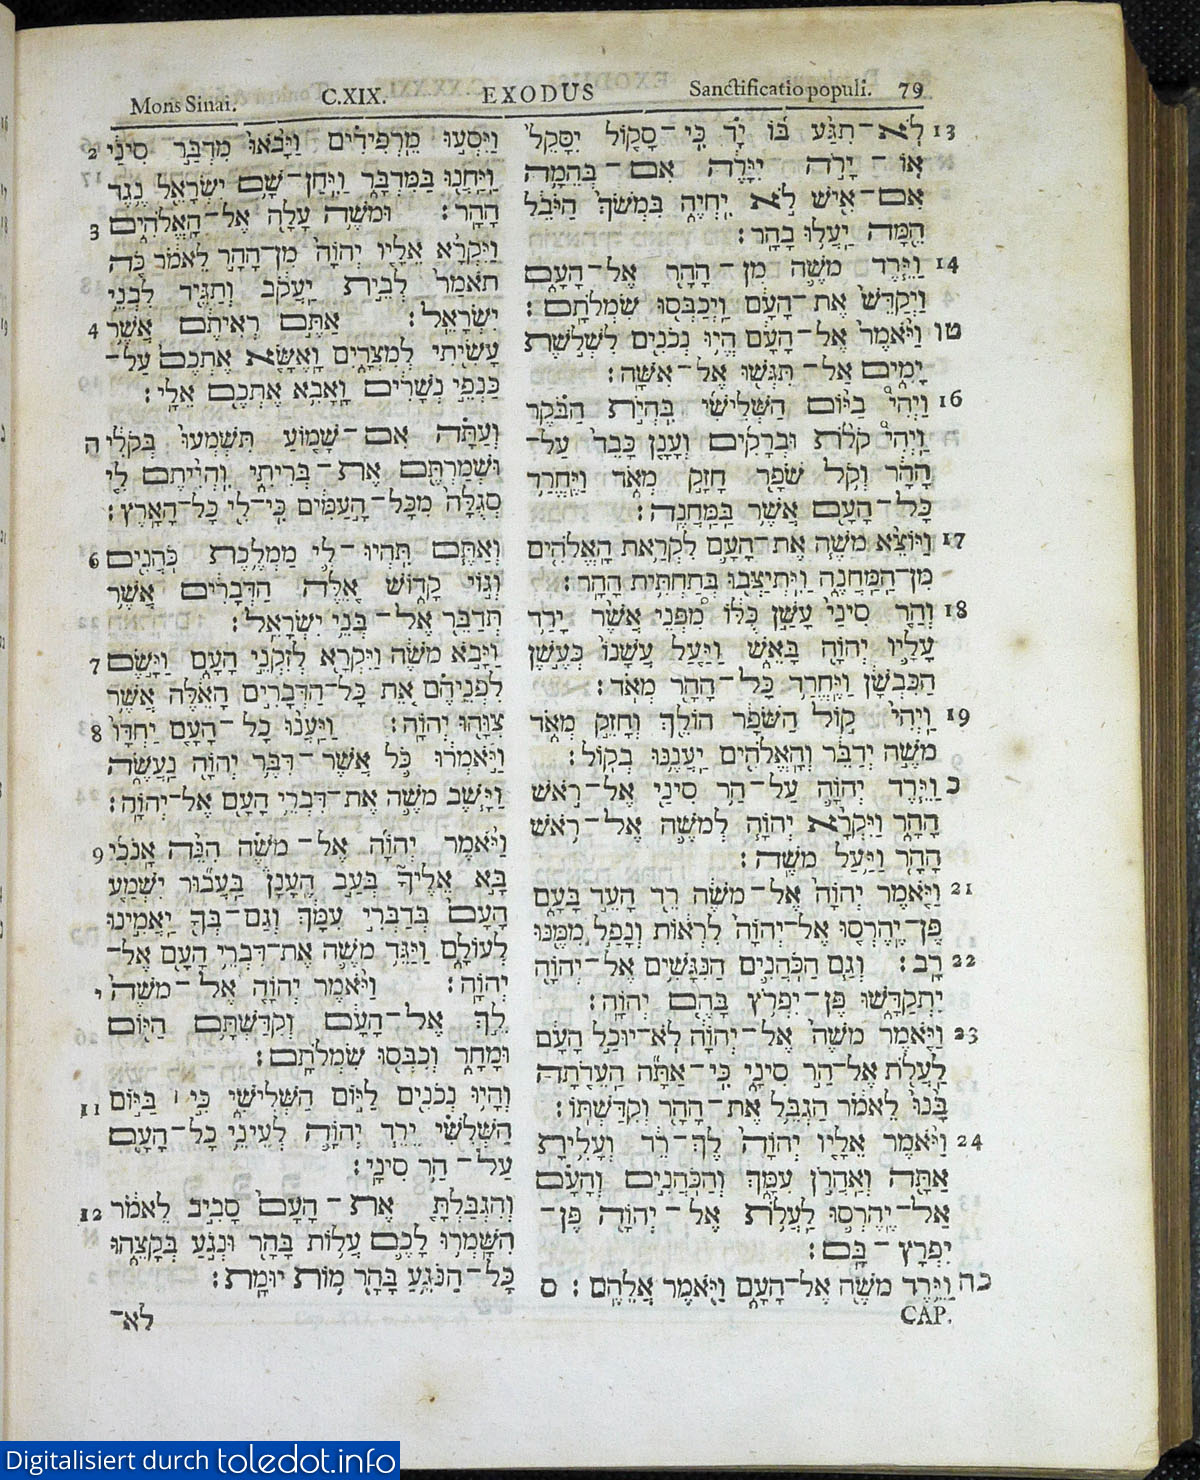 Mons Sinai. C.XIX. EXODUS Sanctificatio populi. 79
2 וַיִּסְע֣וּ מֵרְפִידִ֗ים וַיָּבֹ֙אוּ֙ מִדְבַּ֣ר סִינַ֔י
וַֽיַּחֲנ֖וּ בַּמִּדְבָּ֑ר וַיִּֽחַן־שָׁ֥ם יִשְׂרָאֵ֖ל נֶ֥גֶד
3 הָהָֽר׃ וּמֹשֶׁ֥ה עָלָ֖ה אֶל־הָאֱלֹהִ֑ים
וַיִּקְרָ֨א אֵלָ֤יו יְהוָֹה֙ מִן־הָהָ֣ר לֵאמֹ֔ר כֹּ֤ה
תֹאמַר֙ לְבֵ֣ית יַֽעֲקֹ֔ב וְתַגֵּ֖יד לִבְנֵ֥י
4 יִשְׂרָאֵֽל׃ אַתֶּ֣ם רְאִיתֶ֔ם אֲשֶׁ֥ר
עָשִׂ֖יתִי לְמִצְרָ֑יִם וָאֶשָּׂ֤א אֶתְכֶם֙ עַל־
כַּנְפֵ֣י נְשָׁרִ֔ים וָֽאָבִ֥א אֶתְכֶ֖ם אֵלָֽי׃
ה וְעַתָּ֗ה אִם־שָׁמ֤וֹעַ תִּשְׁמְעוּ֙ בְּקֹלִ֔י
וּשְׁמַרְתֶּ֖ם אֶת־בְּרִיתִ֑י וִֽהְיִ֨יתֶם לִ֤י
סְגֻלָּה֙ מִכָּל־הָ֣עַמִּ֔ים כִּי־לִ֖י כָּל־הָאָֽרֶץ׃
6 וְאַתֶּ֧ם תִּֽהְיוּ־לִ֛י מַמְלֶ֥כֶת כֹּֽהֲנִ֖ים
וְג֣וֹי קָד֑וֹשׁ אֵ֚לֶּה הַדְּבָרִ֔ים אֲשֶׁ֥ר
תְּדַבֵּ֖ר אֶל־בְּנֵ֥י יִשְׂרָאֵֽל׃
7 וַיָּבֹ֣א מֹשֶׁ֔ה וַיִּקְרָ֖א לְזִקְנֵ֣י הָעָ֑ם וַיָּ֣שֶׂם
לִפְנֵיהֶ֗ם אֵ֚ת כָּל־הַדְּבָרִ֣ים הָאֵ֔לֶּה אֲשֶׁ֥ר
8 צִוָּ֖הוּ יְהוָֹֽה׃ וַיַּֽעֲנ֨וּ כָל־הָעָ֤ם יַחְדָּו֙
וַיֹּ֣אמְר֔וּ כֹּ֛ל אֲשֶׁר־דִּבֶּ֥ר יְהוָֹ֖ה נַֽעֲשֶׂ֑ה
וַיָּ֧שֶׁב מֹשֶׁ֛ה אֶת־דִּבְרֵ֥י הָעָ֖ם אֶל־יְהוָֹֽה׃
9 וַיֹּ֨אמֶר יְהוָֹ֜ה אֶל־מֹשֶׁ֗ה הִנֵּ֨ה אָֽנֹכִ֜י
בָּ֣א אֵלֶיךָ֮ בְּעַ֣ב הֶֽעָנָן֒ בַּֽעֲב֞וּר יִשְׁמַ֤ע
הָעָם֙ בְּדַבְּרִ֣י עִמָּ֔ךְ וְגַם־בְּךָ֖ יַֽאֲמִ֣ינוּ
לְעוֹלָ֑ם וַיַּגֵּ֥ד מֹשֶׁ֛ה אֶת־דִּבְרֵ֥י הָעָ֖ם אֶל־
י יְהוָֹֽה׃ וַיֹּ֨אמֶר יְהוָֹ֤ה אֶל־מֹשֶׁה֙
לֵ֣ךְ אֶל־הָעָ֔ם וְקִדַּשְׁתָּ֥ם הַיּ֖וֹם
וּמָחָ֑ר וְכִבְּס֖וּ שִׂמְלֹתָֽם׃
11 וְהָי֥וּ נְכֹנִ֖ים לַיּ֣וֹם הַשְּׁלִישִׁ֑י כִּ֣י ׀ בַּיּ֣וֹם
הַשְּׁלִשִׁ֗י יֵרֵ֧ד יְהוָֹ֛ה לְעֵינֵ֥י כָל־הָעָ֖ם
עַל־הַ֥ר סִינָֽי׃
12 וְהִגְבַּלְתָּ֤ אֶת־הָעָם֙ סָבִ֣יב לֵאמֹ֔ר
הִשָּֽׁמְר֥וּ לָכֶ֛ם עֲל֥וֹת בָּהָ֖ר וּנְגֹ֣עַ בְּקָצֵ֑הוּ
כָּל־הַנֹּגֵ֥עַ בָּהָ֖ר מ֥וֹת יוּמָֽת׃
לא־
13 לֹא־תִגַּ֨ע בּ֜וֹ יָ֗ד כִּֽי־סָק֤וֹל יִסָּקֵל֙
אֽוֹ־יָרֹ֣ה יִיָּרֶ֔ה אִם־בְּהֵמָ֥ה
אִם־אִ֖ישׁ לֹ֣א יִֽחְיֶ֑ה בִּמְשֹׁךְ֙ הַיֹּבֵ֔ל
הֵ֖מָּה יַֽעֲל֥וּ בָהָֽר׃
14 וַיֵּ֧רֶד מֹשֶׁ֛ה מִן־הָהָ֖ר אֶל־הָעָ֑ם
וַיְקַדֵּשׁ֙ אֶת־הָעָ֔ם וַֽיְכַבְּס֖וּ שִׂמְלֹתָֽם׃
טו וַיֹּ֙אמֶר֙ אֶל־הָעָ֔ם הֱי֥וּ נְכֹנִ֖ים לִשְׁלֹ֣שֶׁת
יָמִ֑ים אַֽל־תִּגְּשׁ֖וּ אֶל־אִשָּֽׁה׃
16 וַיְהִי֩ בַיּ֨וֹם הַשְּׁלִישִׁ֜י בִּֽהְיֹ֣ת הַבֹּ֗קֶר
וַיְהִי֩ קֹלֹ֨ת וּבְרָקִ֜ים וְעָנָ֤ן כָּבֵד֙ עַל־
הָהָ֔ר וְקֹ֥ל שֹׁפָ֖ר חָזָ֣ק מְאֹ֑ד וַיֶּֽחֱרַ֥ד
כָּל־הָעָ֖ם אֲשֶׁ֥ר בַּֽמַּחֲנֶֽה׃
17 וַיּוֹצֵ֨א מֹשֶׁ֧ה אֶת־הָעָ֛ם לִקְרַ֥את הָֽאֱלֹהִ֖ים
מִן־הַֽמַּחֲנֶ֑ה וַיִּֽתְיַצְּב֖וּ בְּתַחְתִּ֥ית הָהָֽר׃
18 וְהַ֤ר סִינַי֙ עָשַׁ֣ן כֻּלּ֔וֹ מִ֠פְּנֵי אֲשֶׁ֨ר יָרַ֥ד
עָלָ֛יו יְהוָֹ֖ה בָּאֵ֑שׁ וַיַּ֤עַל עֲשָׁנוֹ֙ כְּעֶ֣שֶׁן
הַכִּבְשָׁ֔ן וַיֶּֽחֱרַ֥ד כָּל־הָהָ֖ר מְאֹֽד׃
19 וַֽיְהִי֙ ק֣וֹל הַשֹּׁפָ֔ר הוֹלֵ֖ךְ וְחָזֵ֣ק מְאֹ֑ד
מֹשֶׁ֣ה יְדַבֵּ֔ר וְהָֽאֱלֹהִ֖ים יַֽעֲנֶ֥נּוּ בְקֽוֹל׃
כ וַיֵּ֧רֶד יְהוָֹ֛ה עַל־הַ֥ר סִינַ֖י אֶל־רֹ֣אשׁ
הָהָ֑ר וַיִּקְרָ֨א יְהוָֹ֧ה לְמֹשֶׁ֛ה אֶל־רֹ֥אשׁ
הָהָ֖ר וַיַּ֥עַל מֹשֶֽׁה׃
21 וַיֹּ֤אמֶר יְהוָֹה֙ אֶל־מֹשֶׁ֔ה רֵ֖ד הָעֵ֣ד בָּעָ֑ם
פֶּן־יֶֽהֶרְס֤וּ אֶל־יְהוָֹה֙ לִרְא֔וֹת וְנָפַ֥ל מִמֶּ֖נּוּ
22 רָֽב׃ וְגַ֧ם הַכֹּֽהֲנִ֛ים הַנִּגָּשִׁ֥ים אֶל־יְהוָֹ֖ה
יִתְקַדָּ֑שׁוּ פֶּן־יִפְרֹ֥ץ בָּהֶ֖ם יְהוָֹֽה׃
23 וַיֹּ֤אמֶר מֹשֶׁה֙ אֶל־יְהוָֹ֔ה לֹֽא־יוּכַ֣ל הָעָ֔ם
לַֽעֲלֹ֖ת אֶל־הַ֣ר סִינָ֑י כִּֽי־אַתָּ֞ה הַֽעֵדֹ֤תָה
בָּ֙נוּ֙ לֵאמֹ֔ר הַגְבֵּ֥ל אֶת־הָהָ֖ר וְקִדַּשְׁתּֽוֹ׃
24 וַיֹּ֨אמֶר אֵלָ֤יו יְהוָֹה֙ לֶךְ־רֵ֔ד וְעָלִ֥יתָ
אַתָּ֖ה וְאַֽהֲרֹ֣ן עִמָּ֑ךְ וְהַכֹּֽהֲנִ֣ים וְהָעָ֗ם
אַל־יֶֽהֶרְס֛וּ לַֽעֲלֹ֥ת אֶל־יְהוָֹ֖ה פֶּן־
יִפְרָץ־בָּֽם׃
כה וַיֵּ֥רֶד מֹשֶׁ֖ה אֶל־הָעָ֑ם וַיֹּ֖אמֶר אֲלֵהֶֽם׃ ס
CAP.
Digitalisiert durch toledot.info